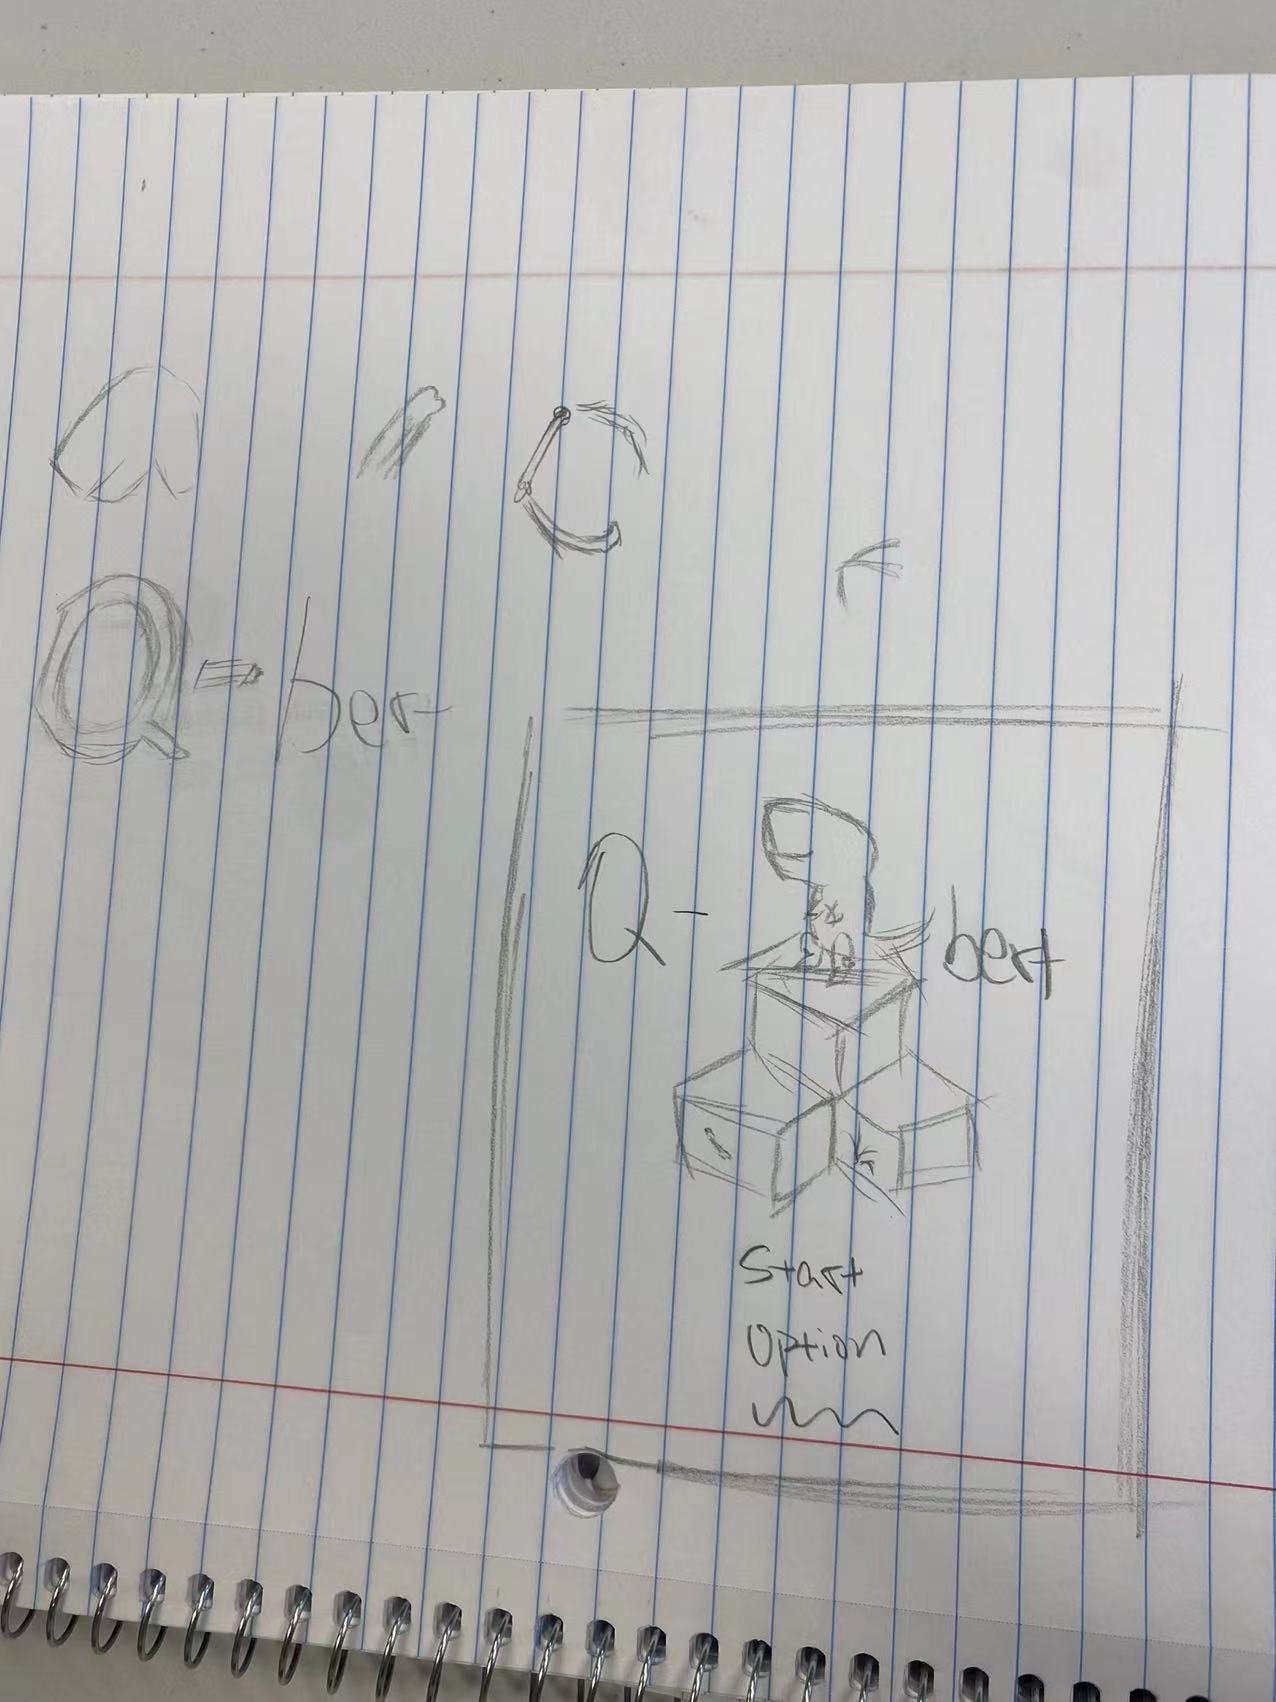 Q-ber
Q-bert
Start
Option